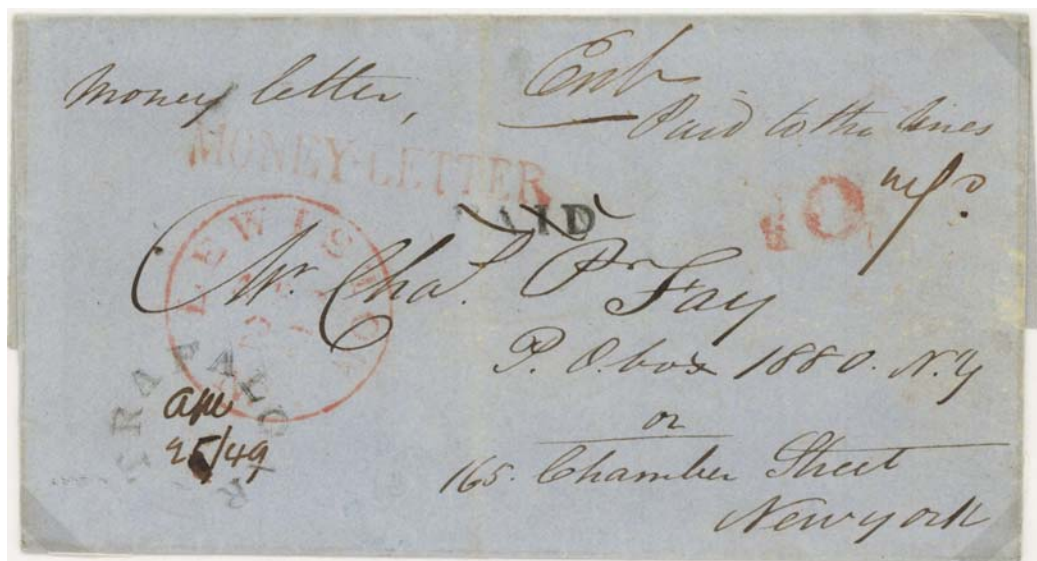 Money letter,
Paid to the lines
MONEY-LETTER
10
PAID
LEWISTON
Mr. Chas. Fay
P. O. box 1880. N.Y
or
165. Chamber Street
New york
25/49